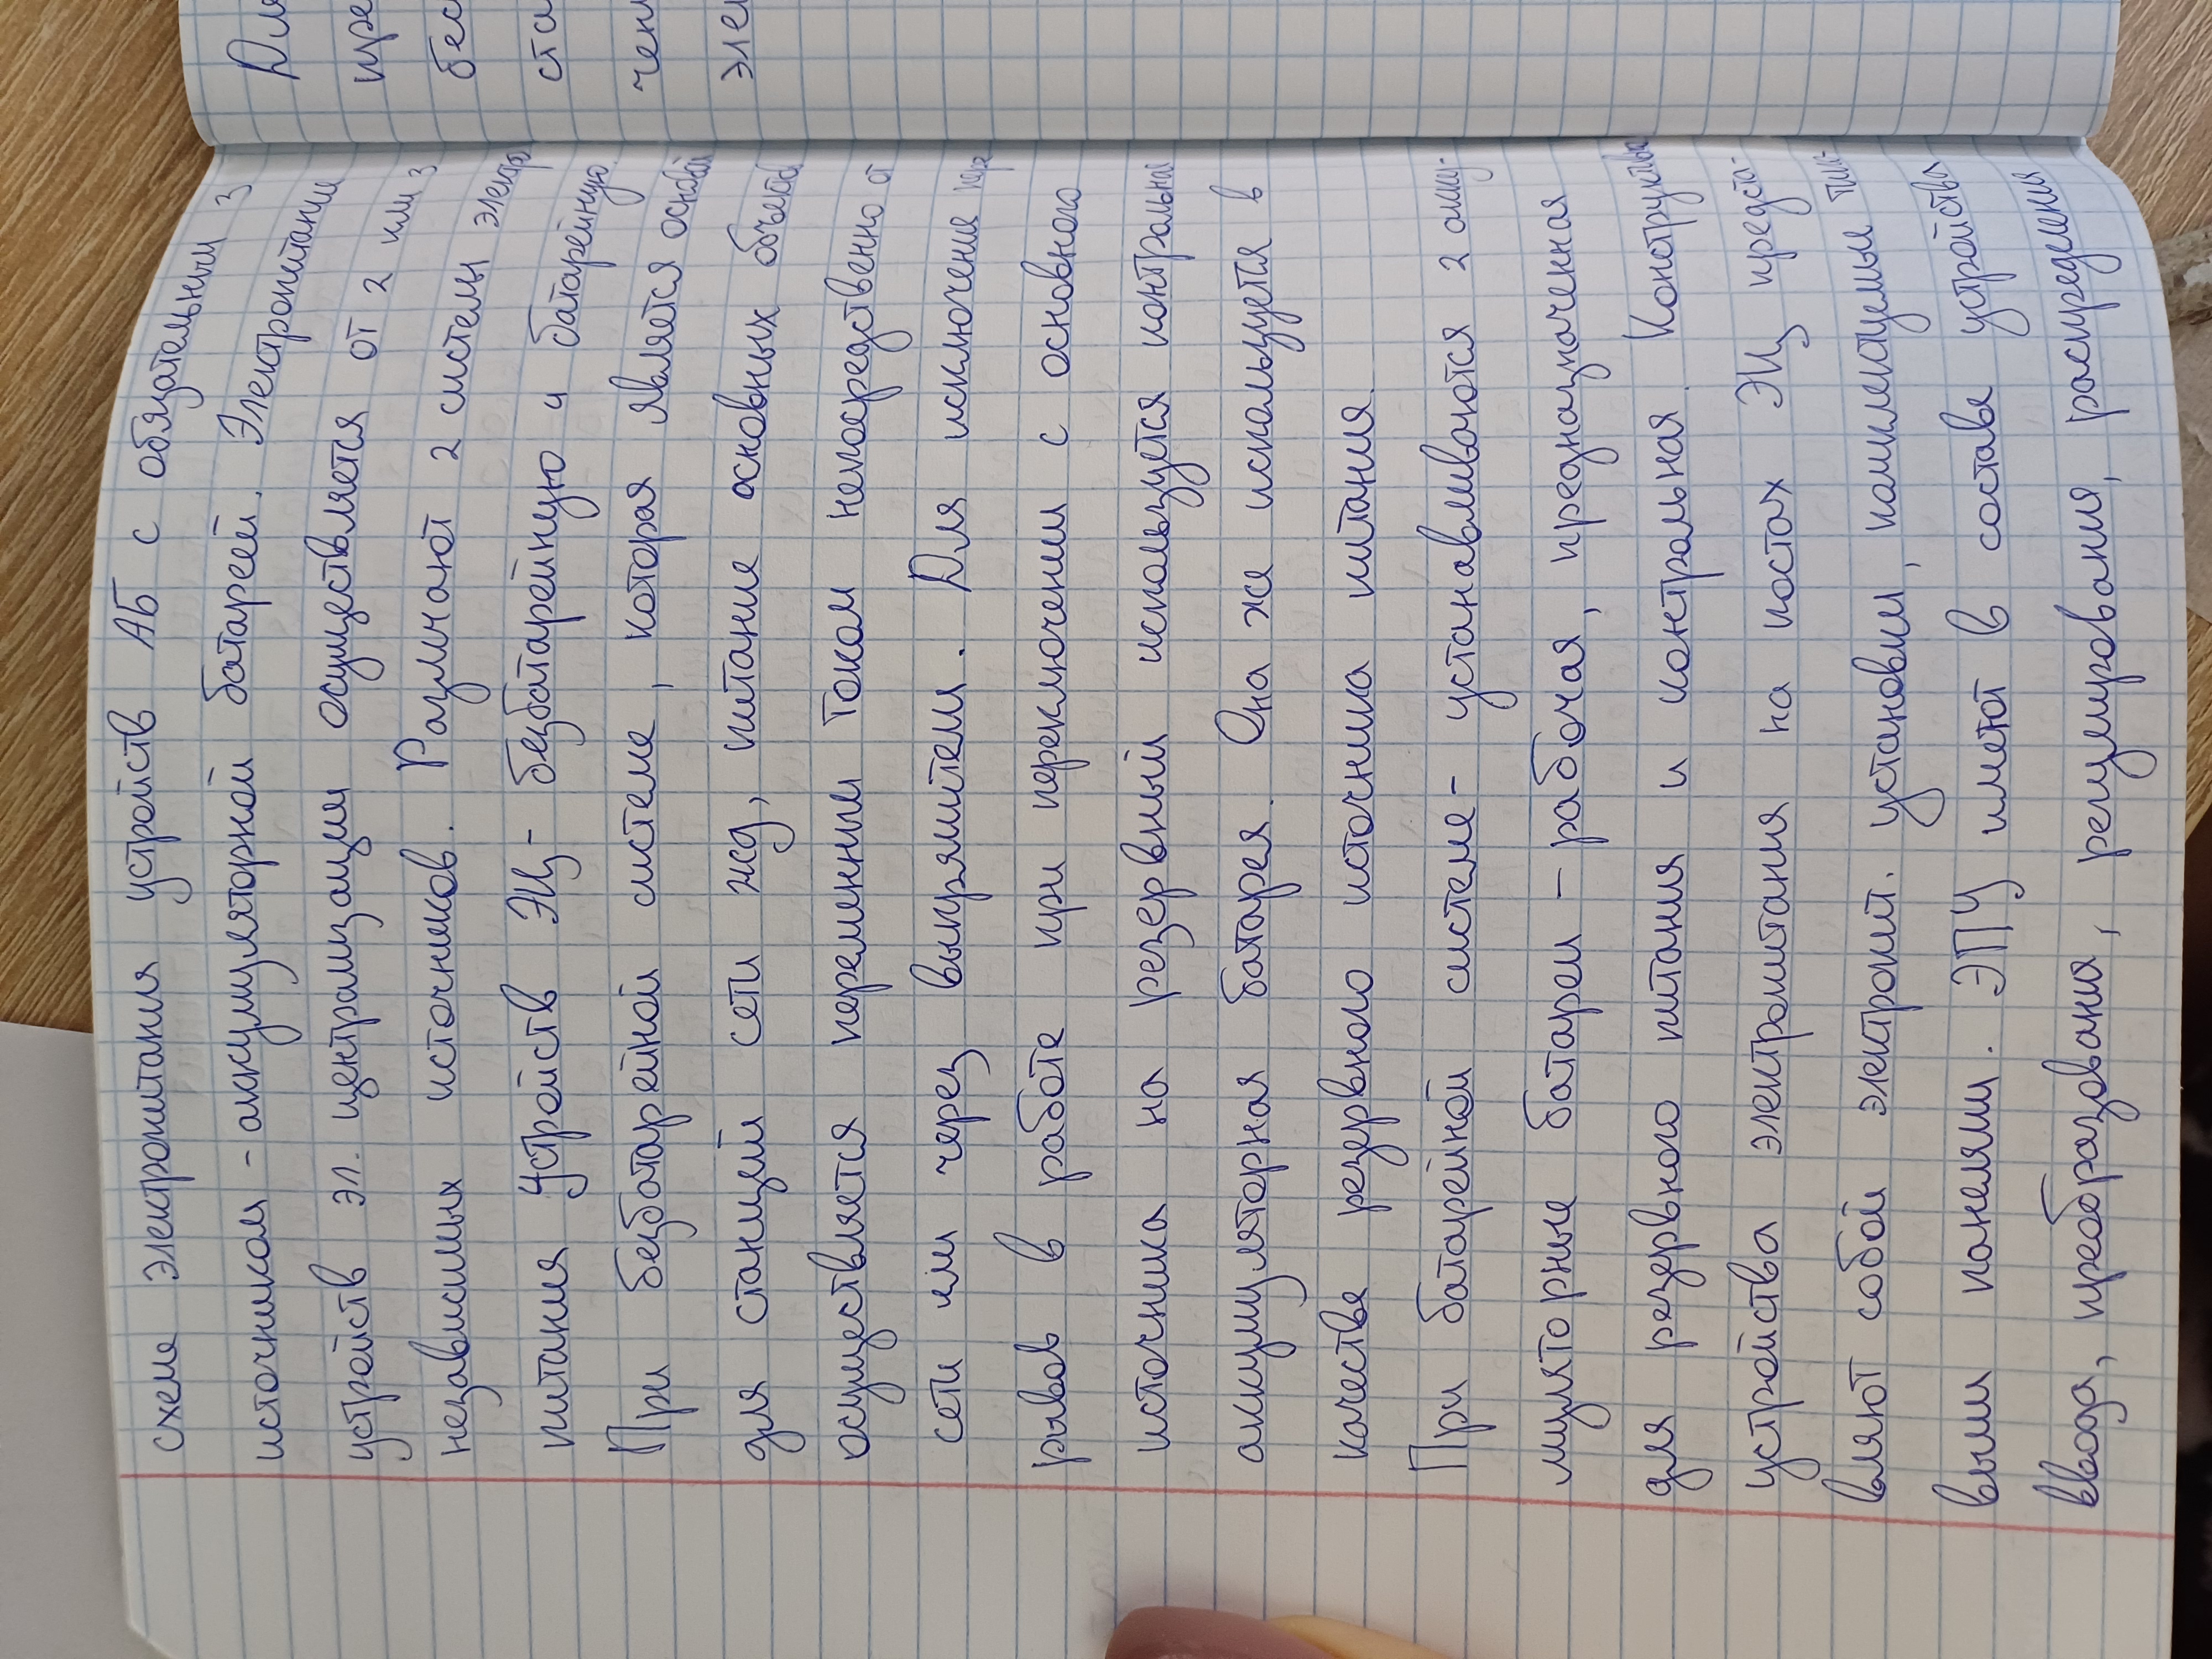 схеме электропитания устройств АБ с обязательным 3
источником - аккумуляторной батареей. Электропитание
устройств эл. централизации осуществляется от 2 или 3
независимых источников. Различают 2 системы электр
питания устройств ЭЦ - безбатарейную и батарейную.
При безбатарейной системе, которая является основной
для станций сети жд, питание основных объектов
осуществляется переменным током непосредственно от
сети или через выпрямители. Для исключения пере
рывов в работе при переключении с основного
источника на резервный используется контрольная
аккумуляторная батарея. Она же используется в
качестве резервного источника питания.
При батарейной системе - устанавливаются 2 акку-
муляторные батареи - рабочая, предназначенная
для резервного питания и контрольная. Конструктивно
устройства электропитания на постах ЭЦ предста-
вляют собой электропит. установки, комплектуемые пит-
выми панелями. ЭПУ имеют в составе устройства
ввода, преобразования, регулирования, распределения
Для
пре
бес
ста
чени
элек